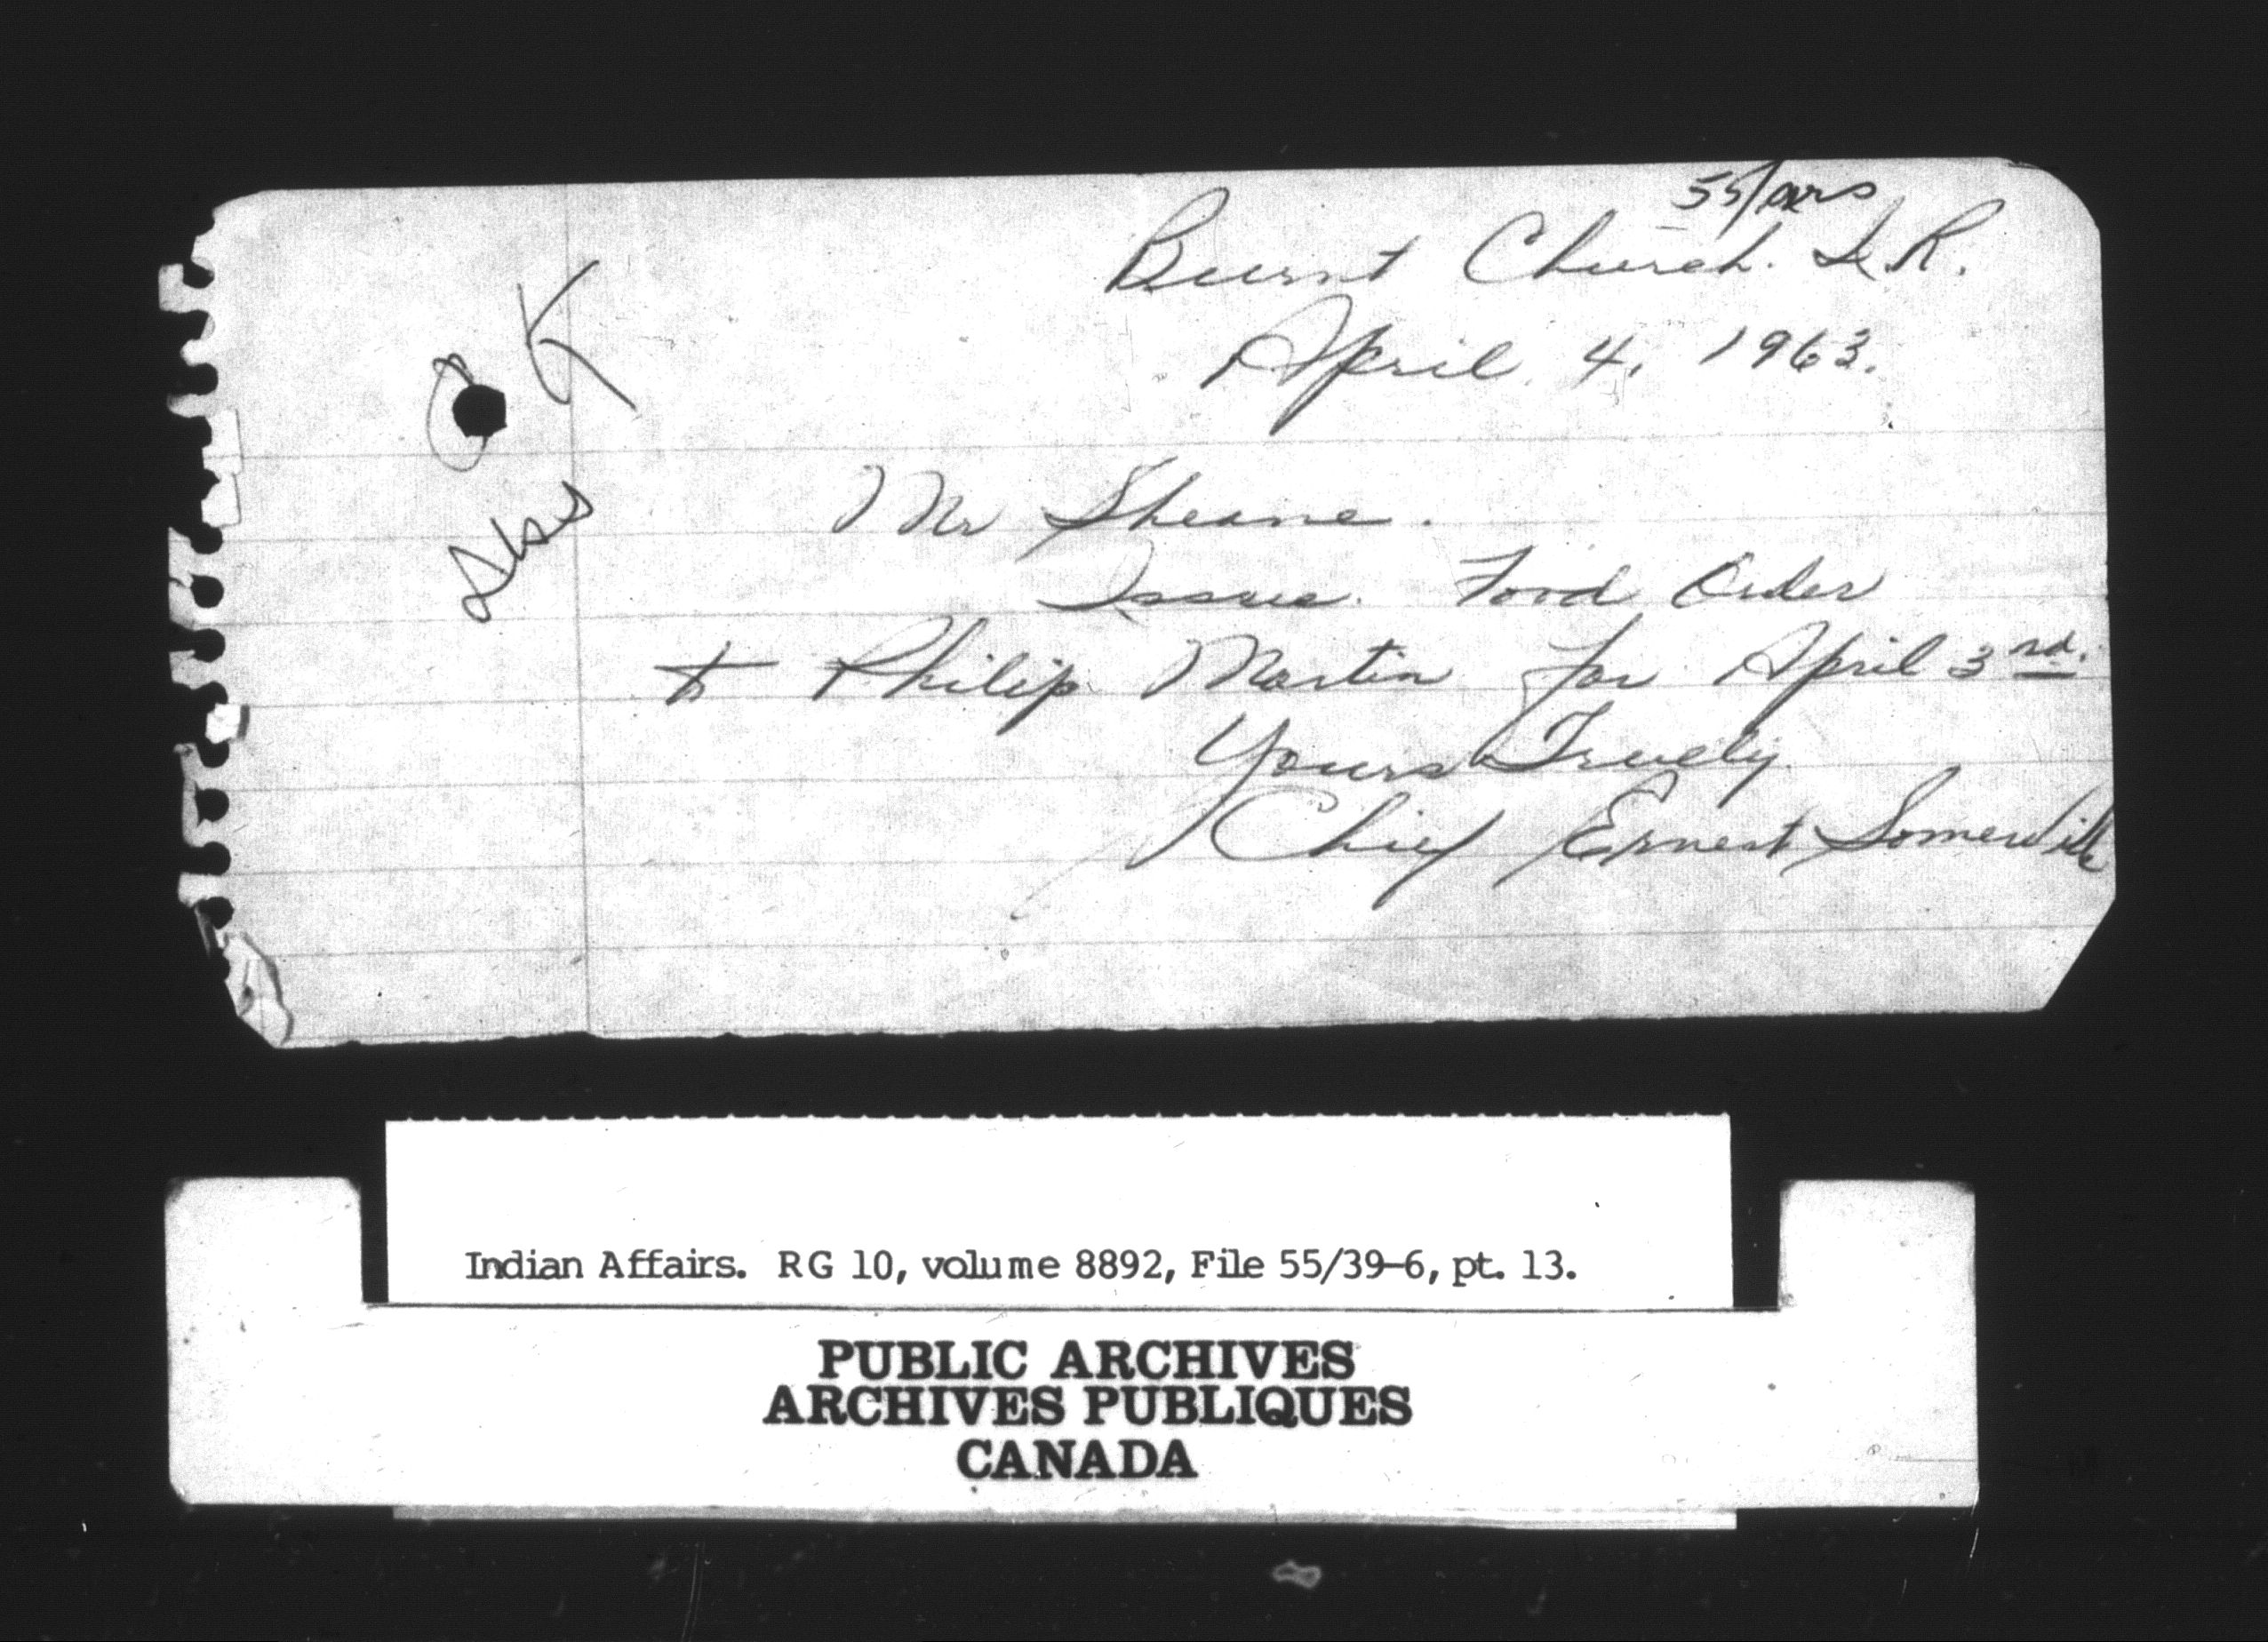 Burnt Church. I.R.
April. 4, 1963.
OK
Mr Sheane.
Issue. Food Order
to Philip Martin for April 3rd.
Yours Truely.
Chief Ernest Somerville
Indian Affairs. RG 10, volume 8892, File 55/39-6, pt. 13.
PUBLIC ARCHIVES
ARCHIVES PUBLIQUES
CANADA